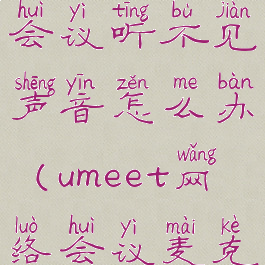 huì yì tīng bù jiàn
会议听不见
shēng yīn zěn me bàn
声音怎么办
wǎng
(umeet网
luò huì yì mài kè
络会议麦克